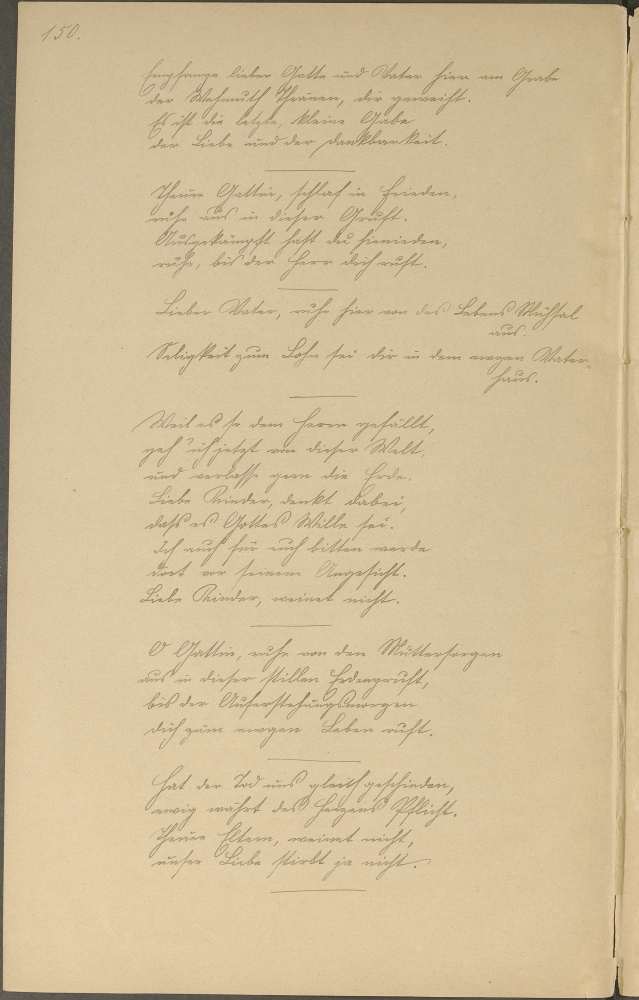 150.
Empfange lieber Gatte und Vater hier am Grabe
der Wehmuth Thränen, dir geweiht.
Es ist die letzte, kleine Gabe
der Liebe und der Dankbarkeit.
Theure Gattin, schlaf in Frieden,
ruhe aus in dieser Gruft.
Ausgekämpft hast du hienieden,
ruhe, bis der Herr dich ruft.
Lieber Vater, ruhe hier von des Lebens Mühsal
aus.
Seligkeit zum Lohn sei dir in dem ewgen Vater-
haus.
Weil es so dem Herrn gefällt,
geh' ich jetzt von dieser Welt,
und verlasse gern die Erde.
Liebe Kinder, denkt dabei,
dass es Gottes Wille sei.
Ich auch für euch bitten werde
dort vor seinem Angesicht.
Liebe Kinder, weinet nicht.
O Gattin, ruhe von den Muttersorgen
aus in dieser stillen Erdengruft,
bis der Auferstehungsmorgen
dich zum ewgen Leben ruft.
Hat der Tod uns gleich geschieden,
ewig währt des Herzens Pflicht.
Theure Eltern, weinet nicht,
unsre Liebe stirbt ja nicht.